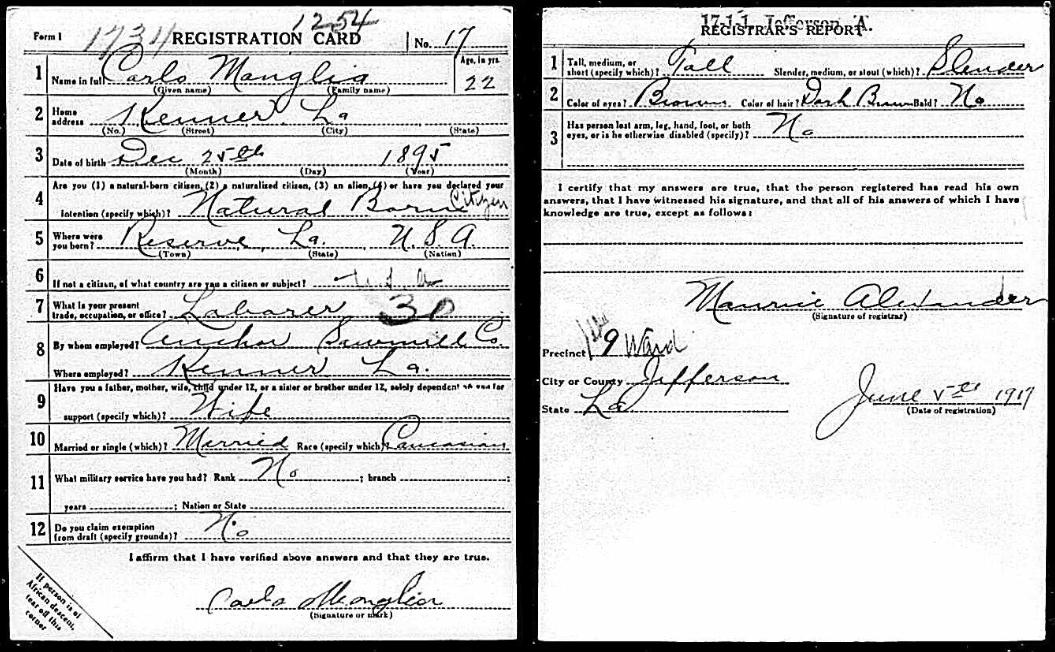 1254
Form 1 1731 REGISTRATION CARD No. 17
1 Name in full Carlo Manglia Age, in yrs. 22
(Given name) (Family name)
2 Home address Kenner La
(No.) (Street) (City) (State)
3 Date of birth Dec 25th 1895
(Month) (Day) (Year)
4 Are you (1) a natural-born citizen, (2) a naturalized citizen, (3) an alien, (4) or have you declared your
intention (specify which)? Natural Born Citizen
5 Where were you born? Reserve, La. U.S.A.
(Town) (State) (Nation)
6 If not a citizen, of what country are you a citizen or subject?
7 What is your present trade, occupation, or office? Laborer 30
8 By whom employed? Anchor Sawmill Co.
Where employed? Kenner La.
9 Have you a father, mother, wife, child under 12, or a sister or brother under 12, solely dependent on you for
support (specify which)? Wife
10 Married or single (which)? Married Race (specify which)? Caucasian
11 What military service have you had? Rank No ; branch ;
years ; Nation or State
12 Do you claim exemption from draft (specify grounds)? No
I affirm that I have verified above answers and that they are true.
Carlo Manglia
(Signature or mark)
If person is of
African descent,
tear off this
corner
17-1-1 Jefferson A.
REGISTRAR'S REPORT
1 Tall, medium, or short (specify which)? Tall Slender, medium, or stout (which)? Slender
2 Color of eyes? Brown Color of hair? Dark Brown Bald? No
3 Has person lost arm, leg, hand, foot, or both
eyes, or is he otherwise disabled (specify)? No
I certify that my answers are true, that the person registered has read his own
answers, that I have witnessed his signature, and that all of his answers of which I have
knowledge are true, except as follows:
Maurice Alexander
(Signature of registrar)
Precinct 9 Ward
City or County Jefferson
State La
June 5th 1917
(Date of registration)